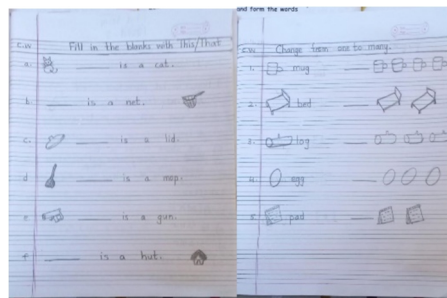 and form the words
c.w Fill in the blanks with This/That
a. ______ is a cat.
b. ______ is a net.
c. ______ is a lid.
d ______ is a mop.
e ______ is a gun.
f ______ is a hut.
c.w. Change from one to many.
1. mug ______
2. bed ______
3. log ______
4. egg ______
5. pad ______